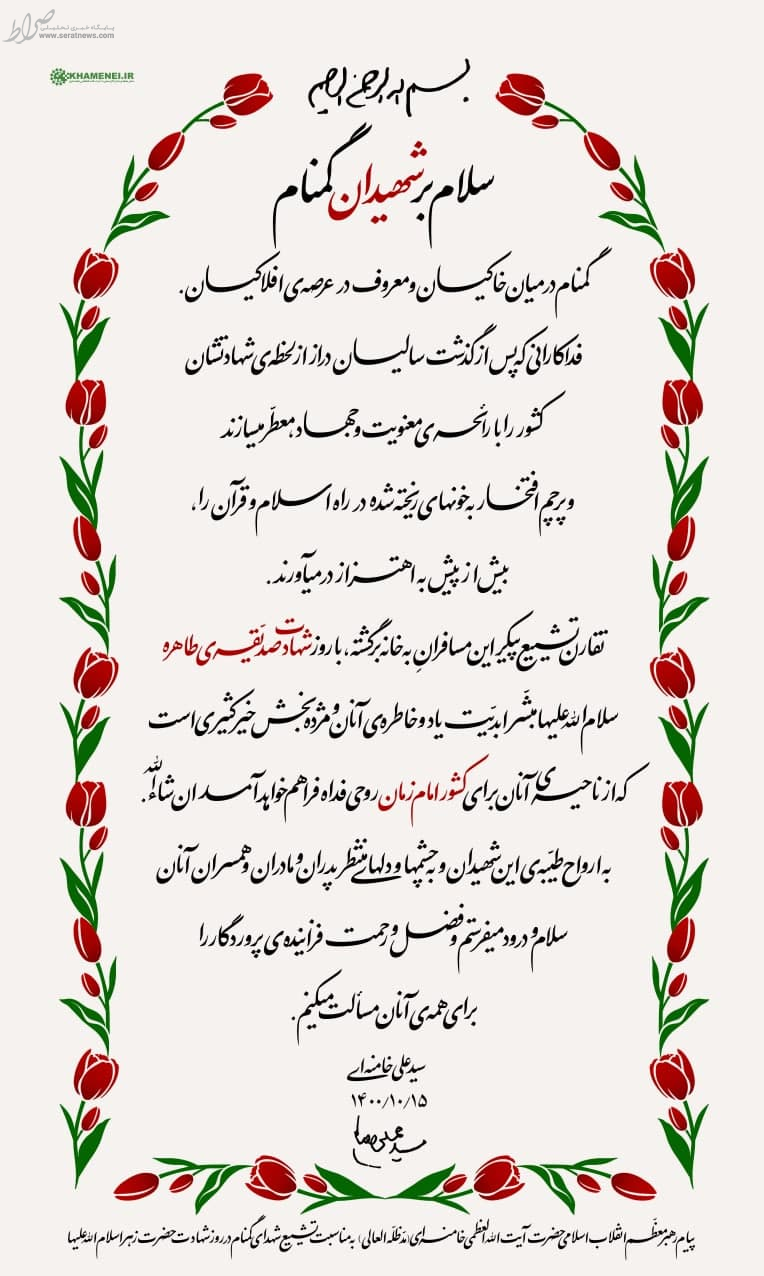 صراط
پایگاه خبری تحلیلی
www.seratnews.com
KHAMENEI.IR
بسم الله الرحمن الرحیم
سلام بر شهیدان گمنام
گمنام در میان خاکیان و معروف در عرصه‌ی افلاکیان.
فداکارانی که پس از گذشت سالیان دراز از لحظه‌ی شهادتشان
کشور را با رائحه‌ی معنویت و جهاد، معطّر میسازند
و پرچم افتخار به خونهای ریخته شده در راه اسلام و قرآن را،
بیش از پیش به اهتزاز درمیآورند.
تقارن تشییع پیکر این مسافرانِ به خانه برگشته، با روز شهادت صدّیقه‌ی طاهره
سلام‌الله‌علیها مبشّر ابدیّت یاد و خاطره‌ی آنان و مژده بخش خیر کثیری است
که از ناحیه‌ی آنان برای کشور امام زمان روحی فداه فراهم خواهد آمد ان شاءالله.
به ارواح طیّبه‌ی این شهیدان و به چشمها و دلهای منتظر پدران و مادران و همسران آنان
سلام و درود میفرستم و فضل و رحمت فزاینده‌ی پروردگار را
برای همه‌ی آنان مسألت میکنم.
سید علی خامنه‌ای
۱۴۰۰/۱۰/۱۵
پیام رهبر معظّم انقلاب اسلامی حضرت آیت الله العظمی خامنه‌ای (مدّظلّه العالی) به مناسبت تشییع شهدای گمنام در روز شهادت حضرت زهرا سلام‌الله‌علیها